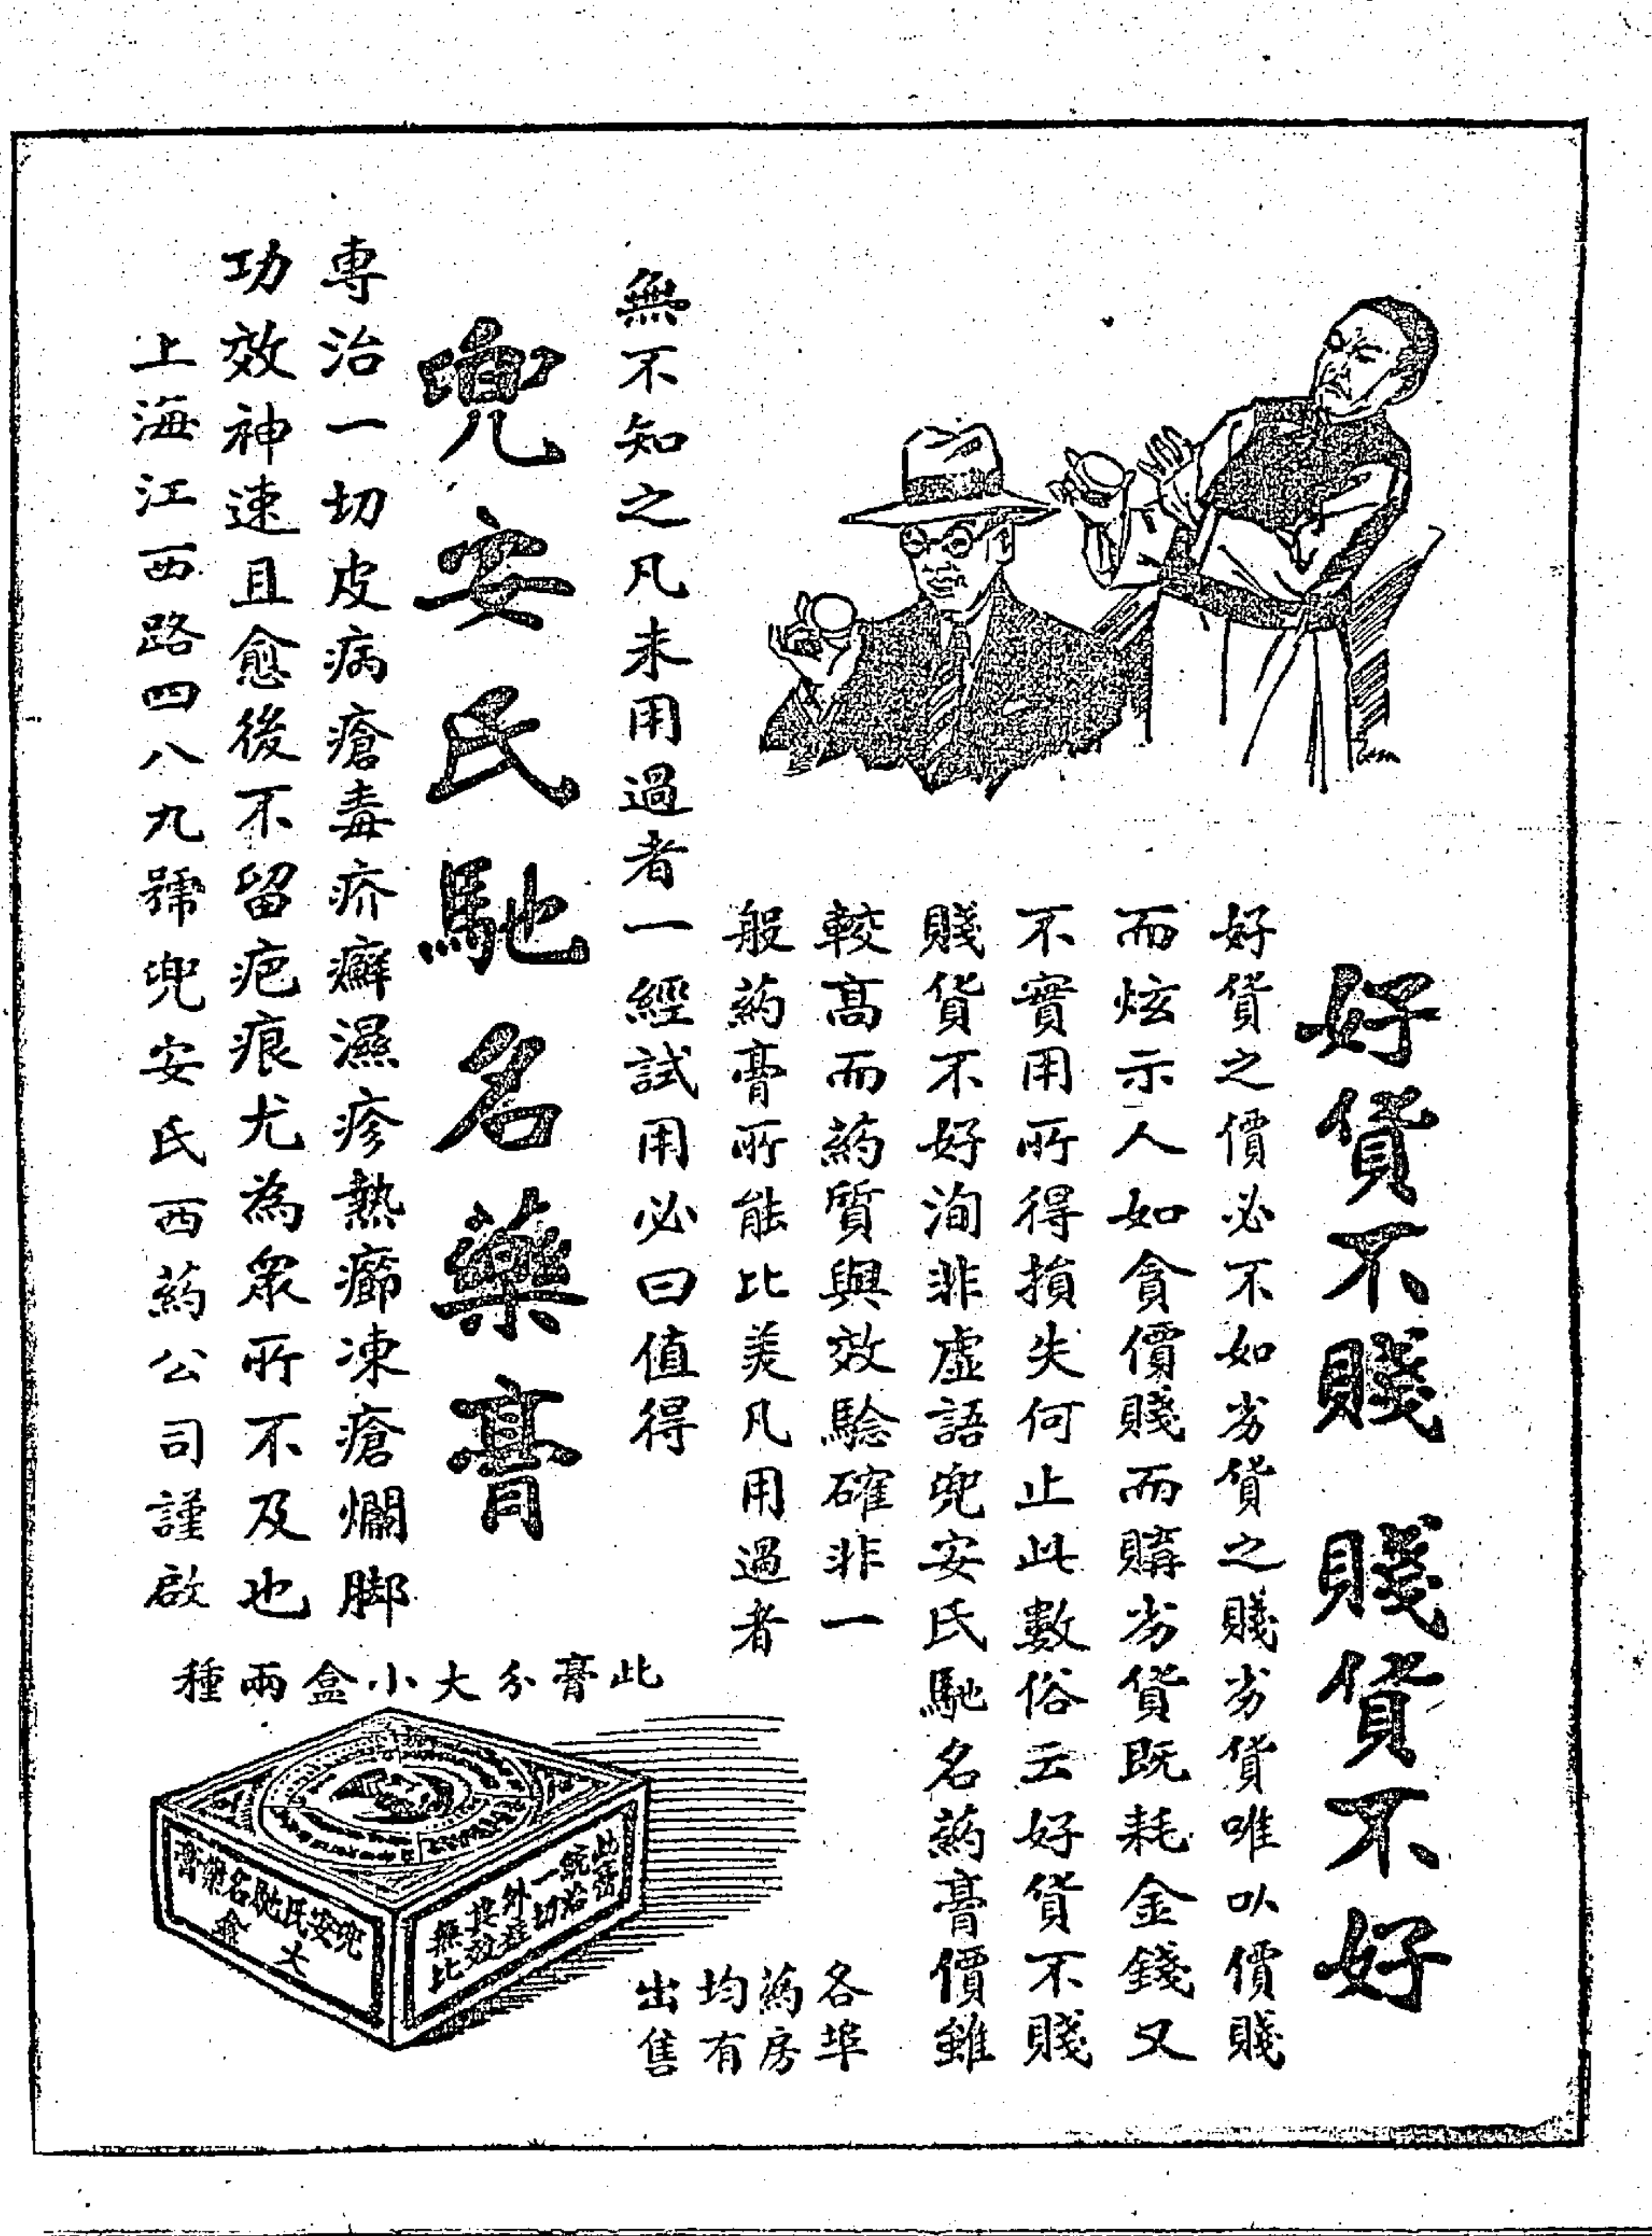 好貨不賤 賤貨不好
好貨之價必不如劣貨之賤劣貨唯以價賤
而炫示人如貪價賤而購劣貨既耗金錢又
不實用所得損失何止此數俗云好貨不賤
賤貨不好洵非虛語兜安氏馳名葯膏價雖
較高而葯質與效驗確非一
般葯膏所能比美凡用過者
無不知之凡未用過者一經試用必曰值得
兜安氏馳名藥膏
專治一切皮病瘡毒疥癬濕疹熱癤凍瘡爛脚
功效神速且愈後不留疤痕尤為衆所不及也
上海江西路四八九號兜安氏西葯公司謹啟
此膏分大小盒兩種
兜安氏馳名藥膏
大盒
此膏
統治
一切
外症
其效
無比
各埠
葯房
均有
出售